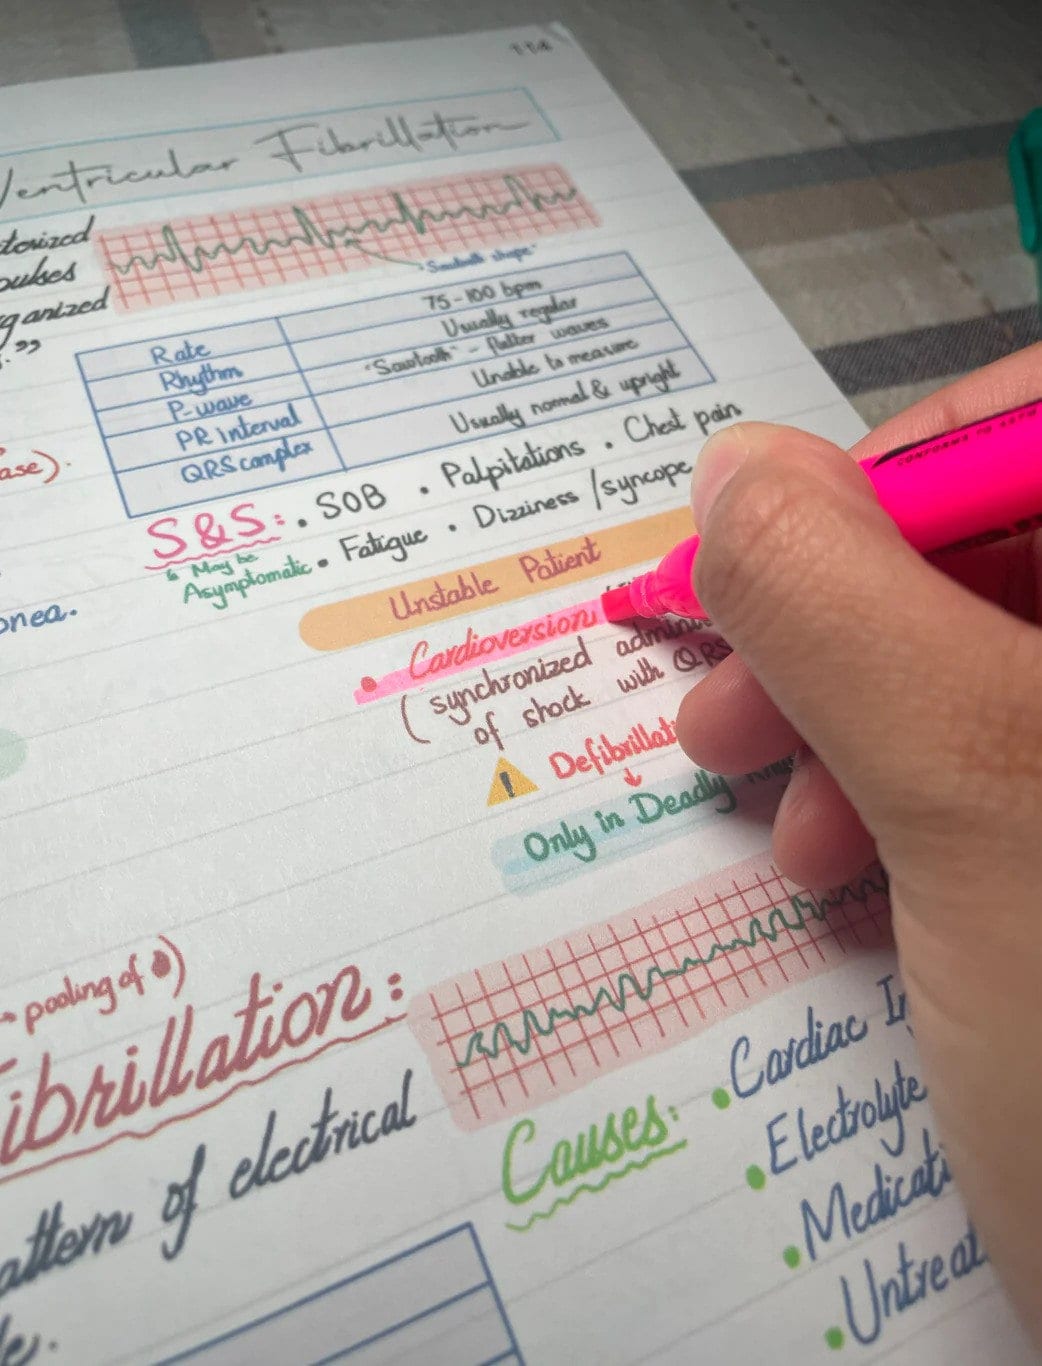 118
Ventricular Fibrillation
torized
pulses
ganized
."
"Sawtooth shape"
Rate 75-100 bpm
Rhythm Usually regular
P-wave "Sawtooth" - flutter waves
PR interval Unable to measure
QRS complex Usually normal & upright
ase).
S&S: • SOB • Palpitations • Chest pain
May be
Asymptomatic • Fatigue • Dizziness /syncope
onea.
Unstable Patient
• Cardioversion
(synchronized admini
of shock with QRS
! Defibrillati
↓
Only in Deadly
→ pooling of
)
ibrillation:
attern of electrical
Causes: • Cardiac In
• Electrolyte
• Medicati
• Untreat
CONFORMS TO ASTM